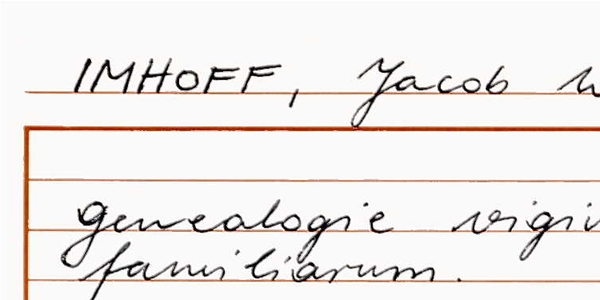 IMHOFF, Jacob
genealogie
familiarum.